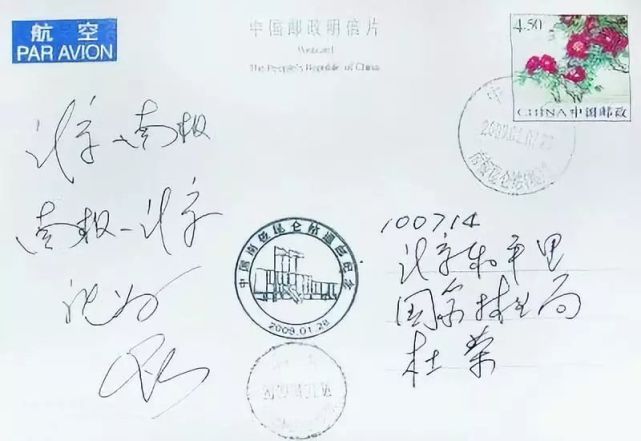 航 空
PAR AVION
中国邮政明信片
Postcard
The People's Republic of China
4.50
CHINA中国邮政
北京-南极
南极-北京
中国南极昆仑站通信纪念
2009.01.28
100714
北京和平里
国家林业局
杜荣